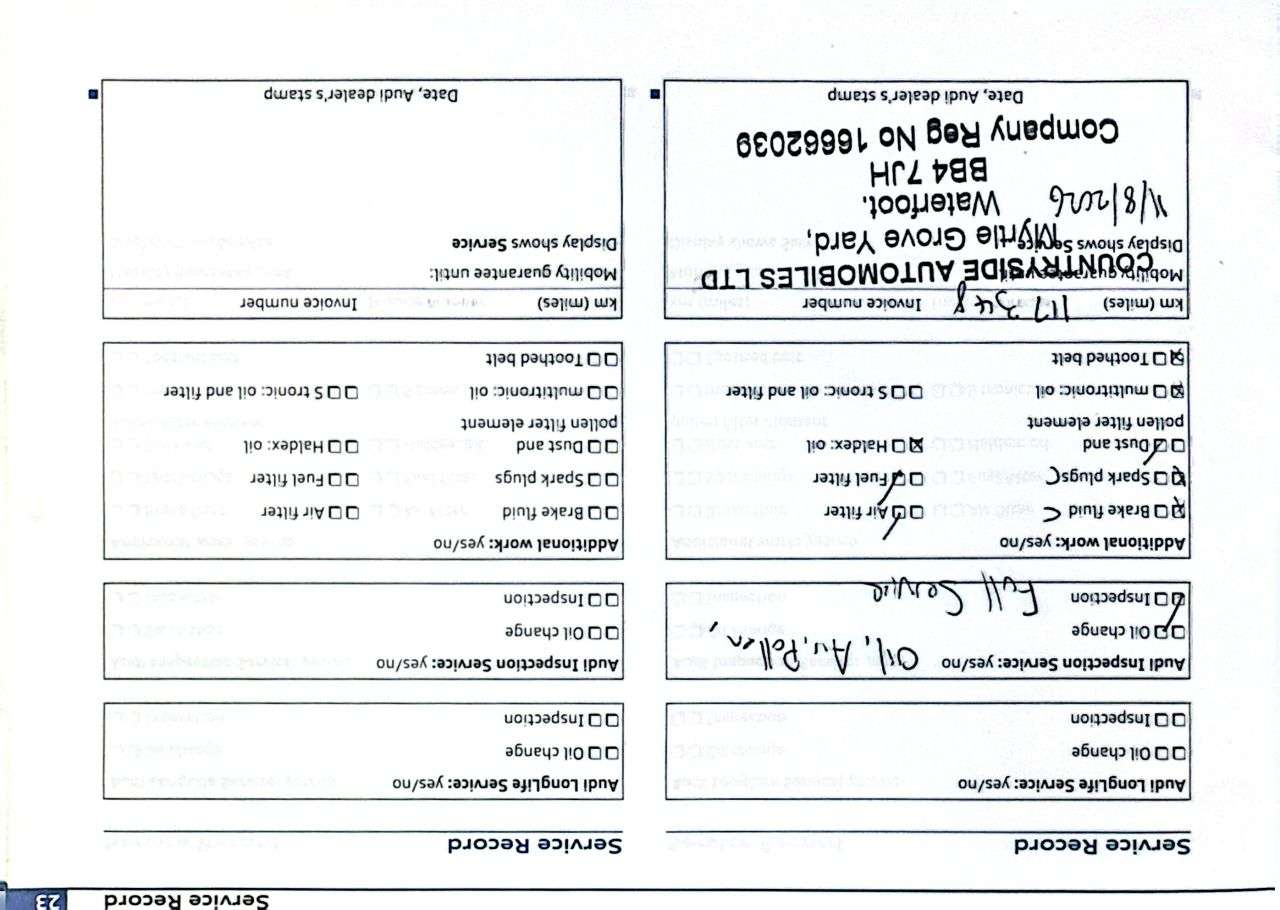 Service Record 23
Service Record
Audi LongLife Service: yes/no
Oil change
Inspection
Audi Inspection Service: yes/no
Oil change
Inspection
Oil, Air, Pollen,
Full Service
Additional work: yes/no
Brake fluid Air filter
Spark plugs Fuel filter
Dust and Haldex: oil
pollen filter element
multitronic: oil S tronic: oil and filter
Toothed belt
km (miles) 117348 Invoice number
Mobility guarantee until:
Display shows Service
COUNTRYSIDE AUTOMOBILES LTD
Myrtle Grove Yard,
Waterfoot.
BB4 7JH
Company Reg No 16662039
11/8/2026
Date, Audi dealer's stamp
Service Record
Audi LongLife Service: yes/no
Oil change
Inspection
Audi Inspection Service: yes/no
Oil change
Inspection
Additional work: yes/no
Brake fluid Air filter
Spark plugs Fuel filter
Dust and Haldex: oil
pollen filter element
multitronic: oil S tronic: oil and filter
Toothed belt
km (miles) Invoice number
Mobility guarantee until:
Display shows Service
Date, Audi dealer's stamp